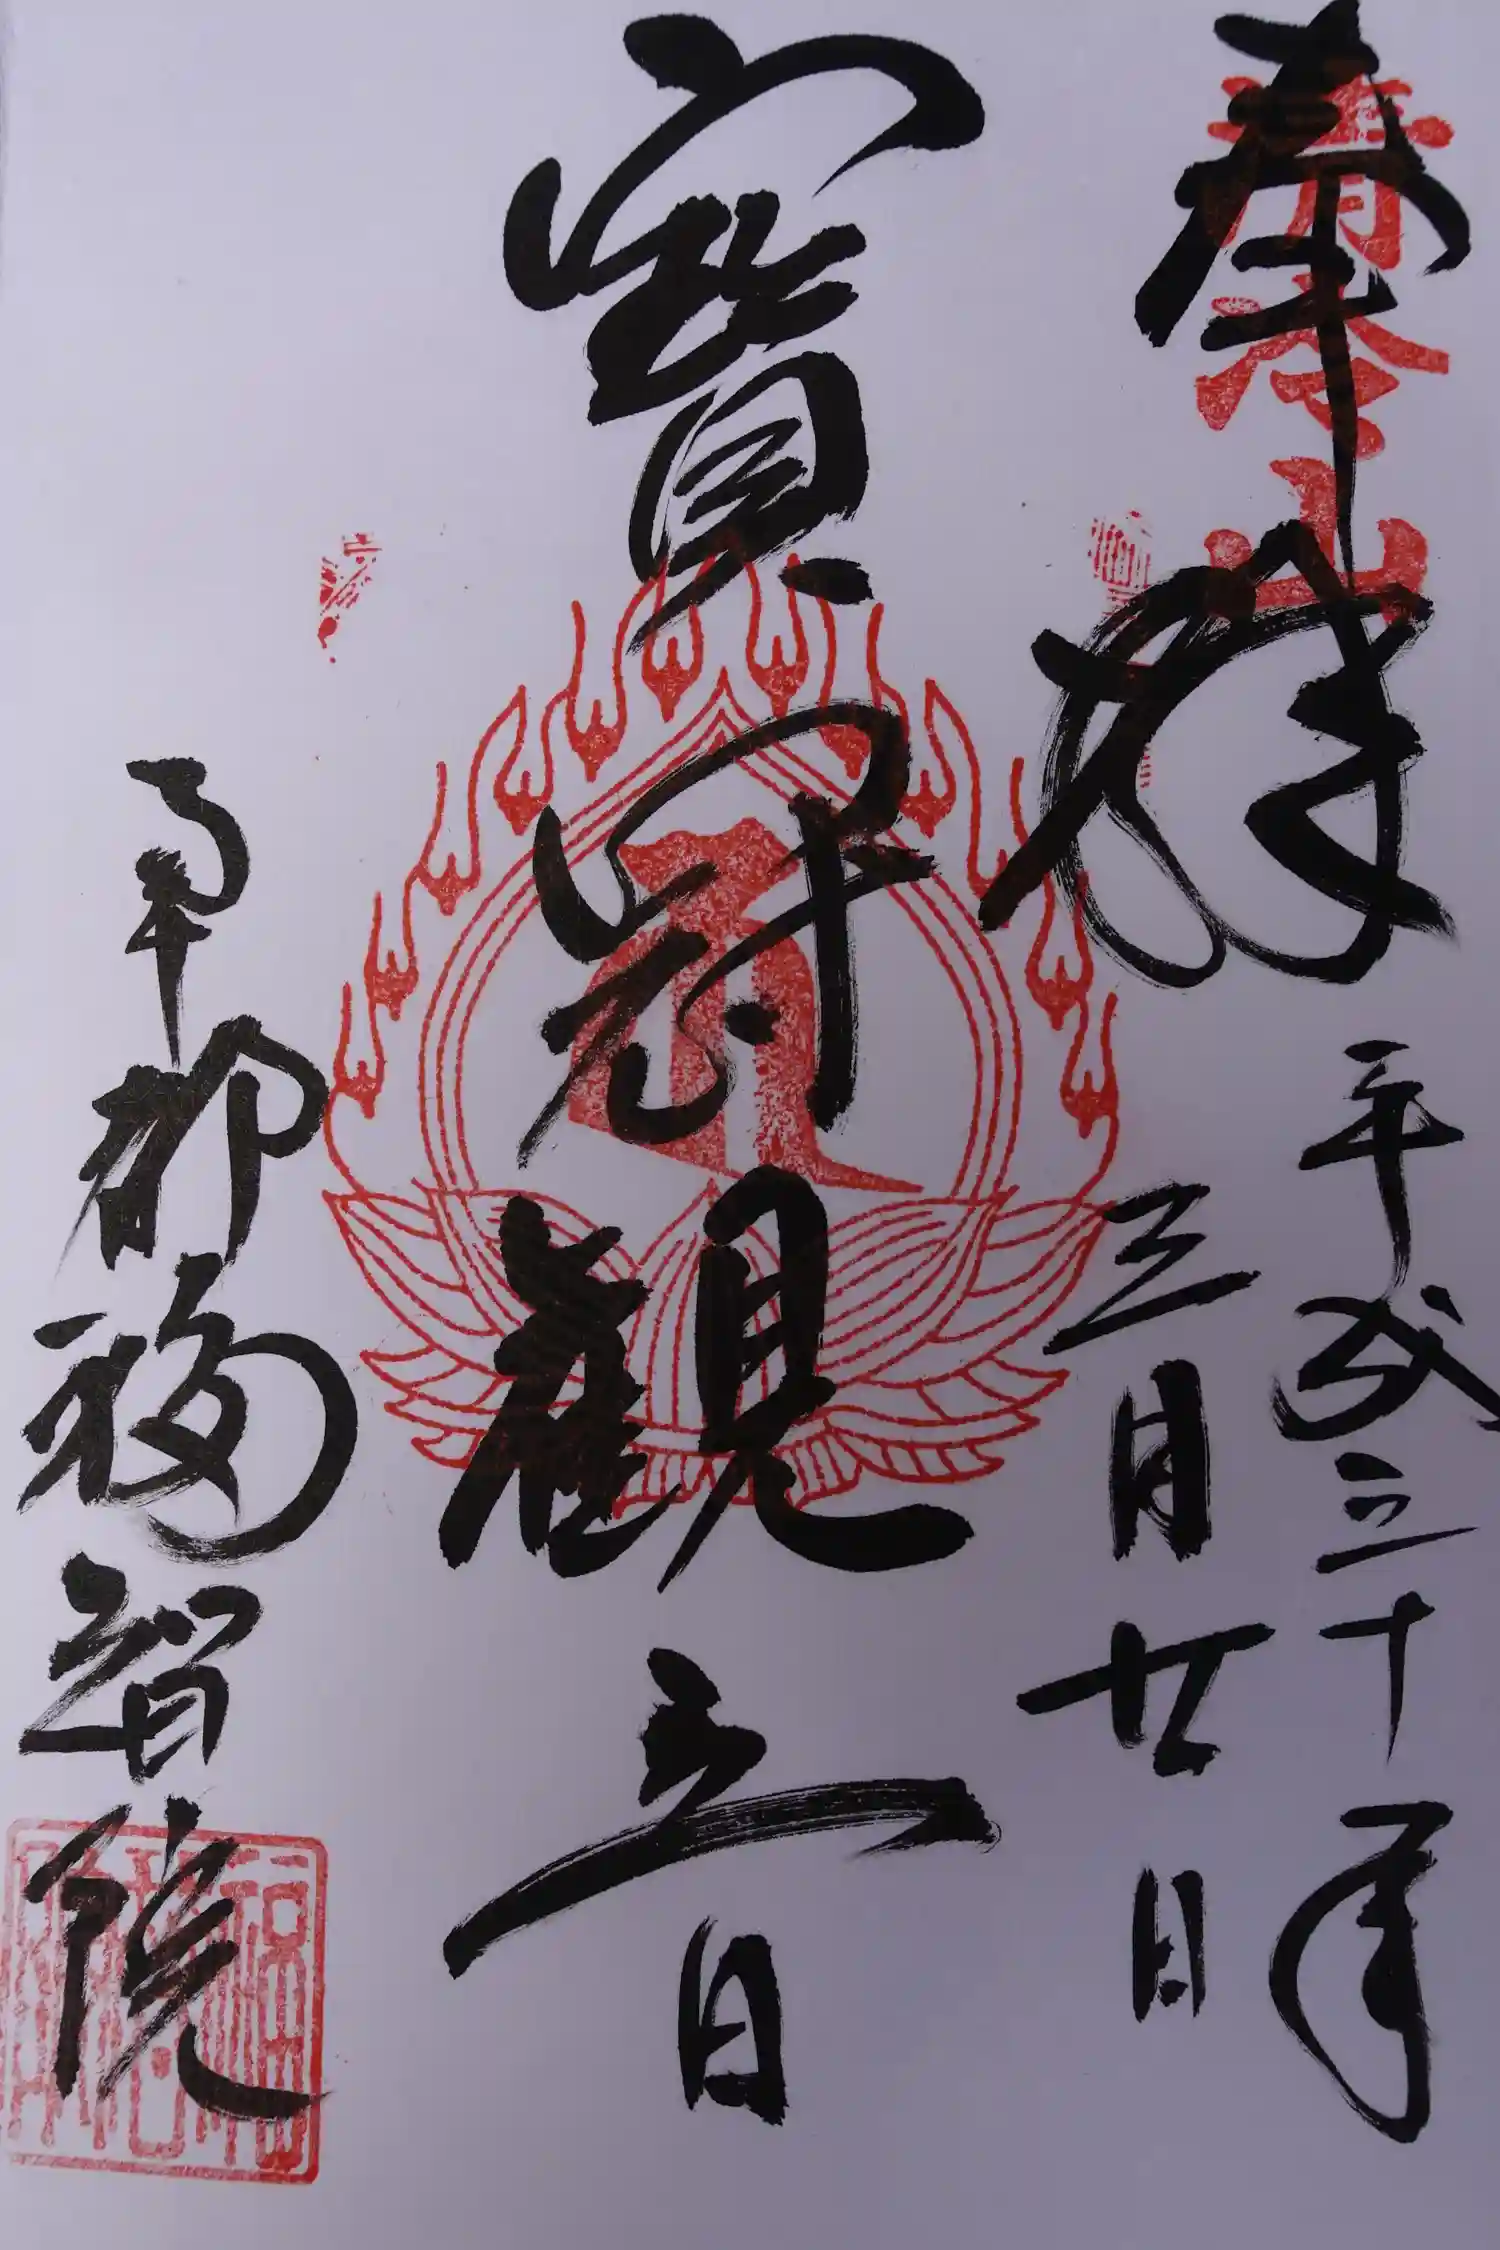 奉拝
清冷山
平成三十年
三月廿日
寶冠観音
南都福智院